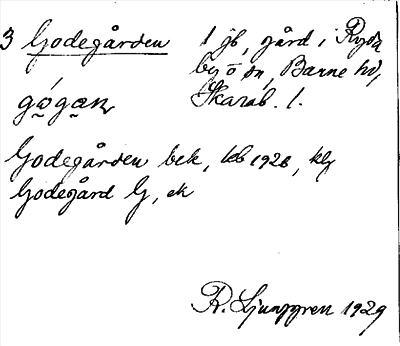 3 Godegården 1 jb, gård i Ryda
by o sn, Barne hd,
Skarab. l.
Godegården bek, leb 1926, kly
Godegård G, ek
R. Ljunggren 1929